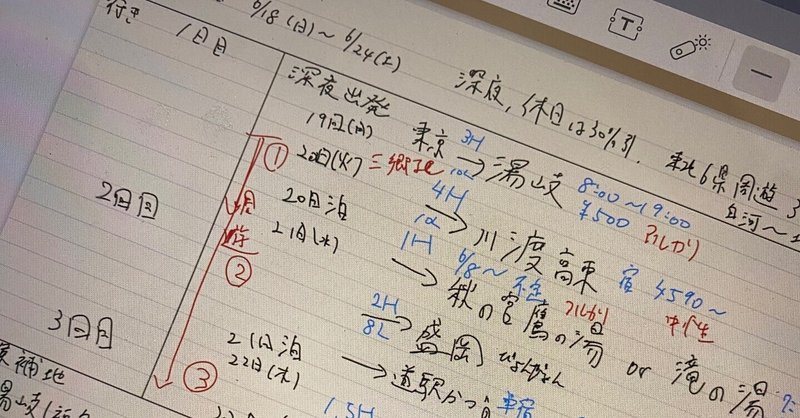 6/18(日)～6/24(土)
1日目
深夜出発
深夜、休日は30%引.
東北6県周遊
白河～
19日(月)
東京
3H
→湯岐
8:00～9:00
¥500
アルカリ
①
20日(火)
三郷北
4H
2日目
周遊
20日泊
21日(水)
→川渡高東
宿 4590～
中性
1H
6/8～
→秋の宮鷹の湯 or 滝の湯
②
2H
8L
→盛岡
ぴょんぴょん
3日目
21日泊
22日(木)
→道駅かつ
車宿
③
候補地
湯岐
1.5H